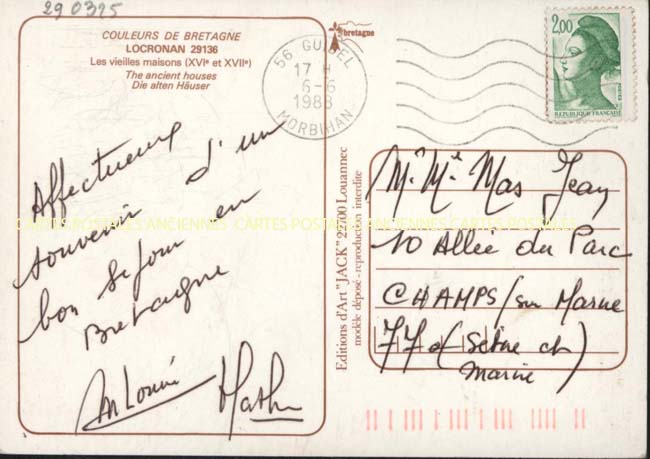 290395
COULEURS DE BRETAGNE
LOCRONAN 29136
Les vieilles maisons (XVIe et XVIIe)
The ancient houses
Die alten Häuser
bretagne
56 GUIDEL
17 H
6-6
1988
MORBIHAN
2,00
POSTES
REPUBLIQUE FRANÇAISE
Affectueux
souvenir d'un
bon séjour en
Bretagne
CARTES POSTALES ANCIENNES CARTES POSTALES ANCIENNES CARTES POSTALES ANCIENNES
Editions d'Art "JACK" 22700 Louannec
modèle déposé - reproduction interdite
Mr Me Mas Jean
10 Allee du Parc
CHAMPS/sur Marne
77 (Seine et
Marne)